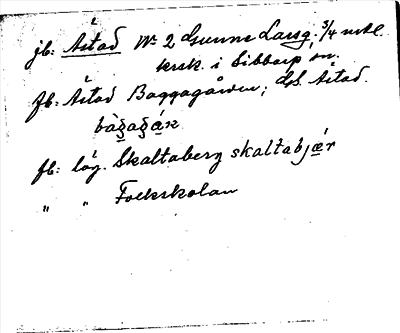 jb: Åstad Nr 2 Gunne Larsg. 3/4 mtl.
kersk. i Sibbarp sn.
fb: Åstad Baggagården; ds. Åstad.
bàg̱ag̱á̱ɽɳ
fb: läg. Skaltaberg skaltabjæ̱r
" " Folkskolan